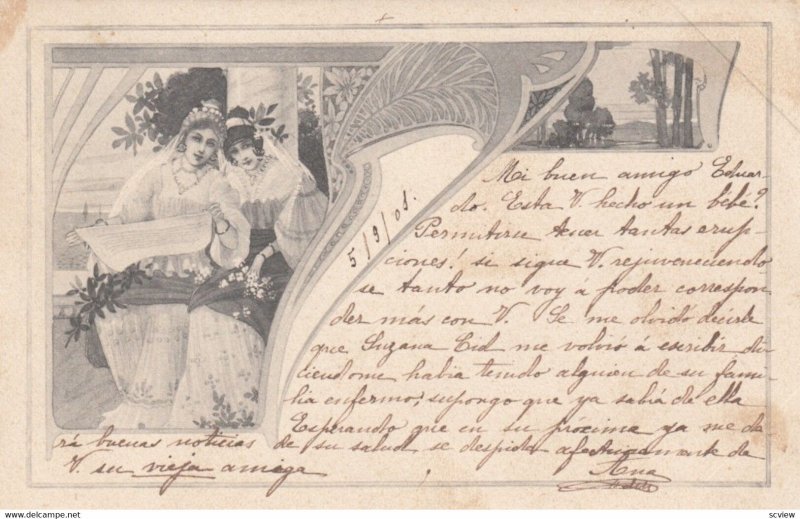 5/9/01.
Mi buen amigo Eduar-
do. Esta V. hecho un bébé?
Permitirse tener tantas erup-
ciones! si sigue V. rejuveneciendo
se tanto no voy a poder correspon
der más con V. Se me olvidó decirle
que Suzana Cid me volvió á escribir di
ciendome habia tenido alguien de su fami
lia enfermo; supongo que ya sabiá de ella
Esperando que en su próxima ya me da
rá buenas noticias de su salud se despide afectuosamente de
V. su vieja amiga Ana
https://www.hippostcard.com/store/scview